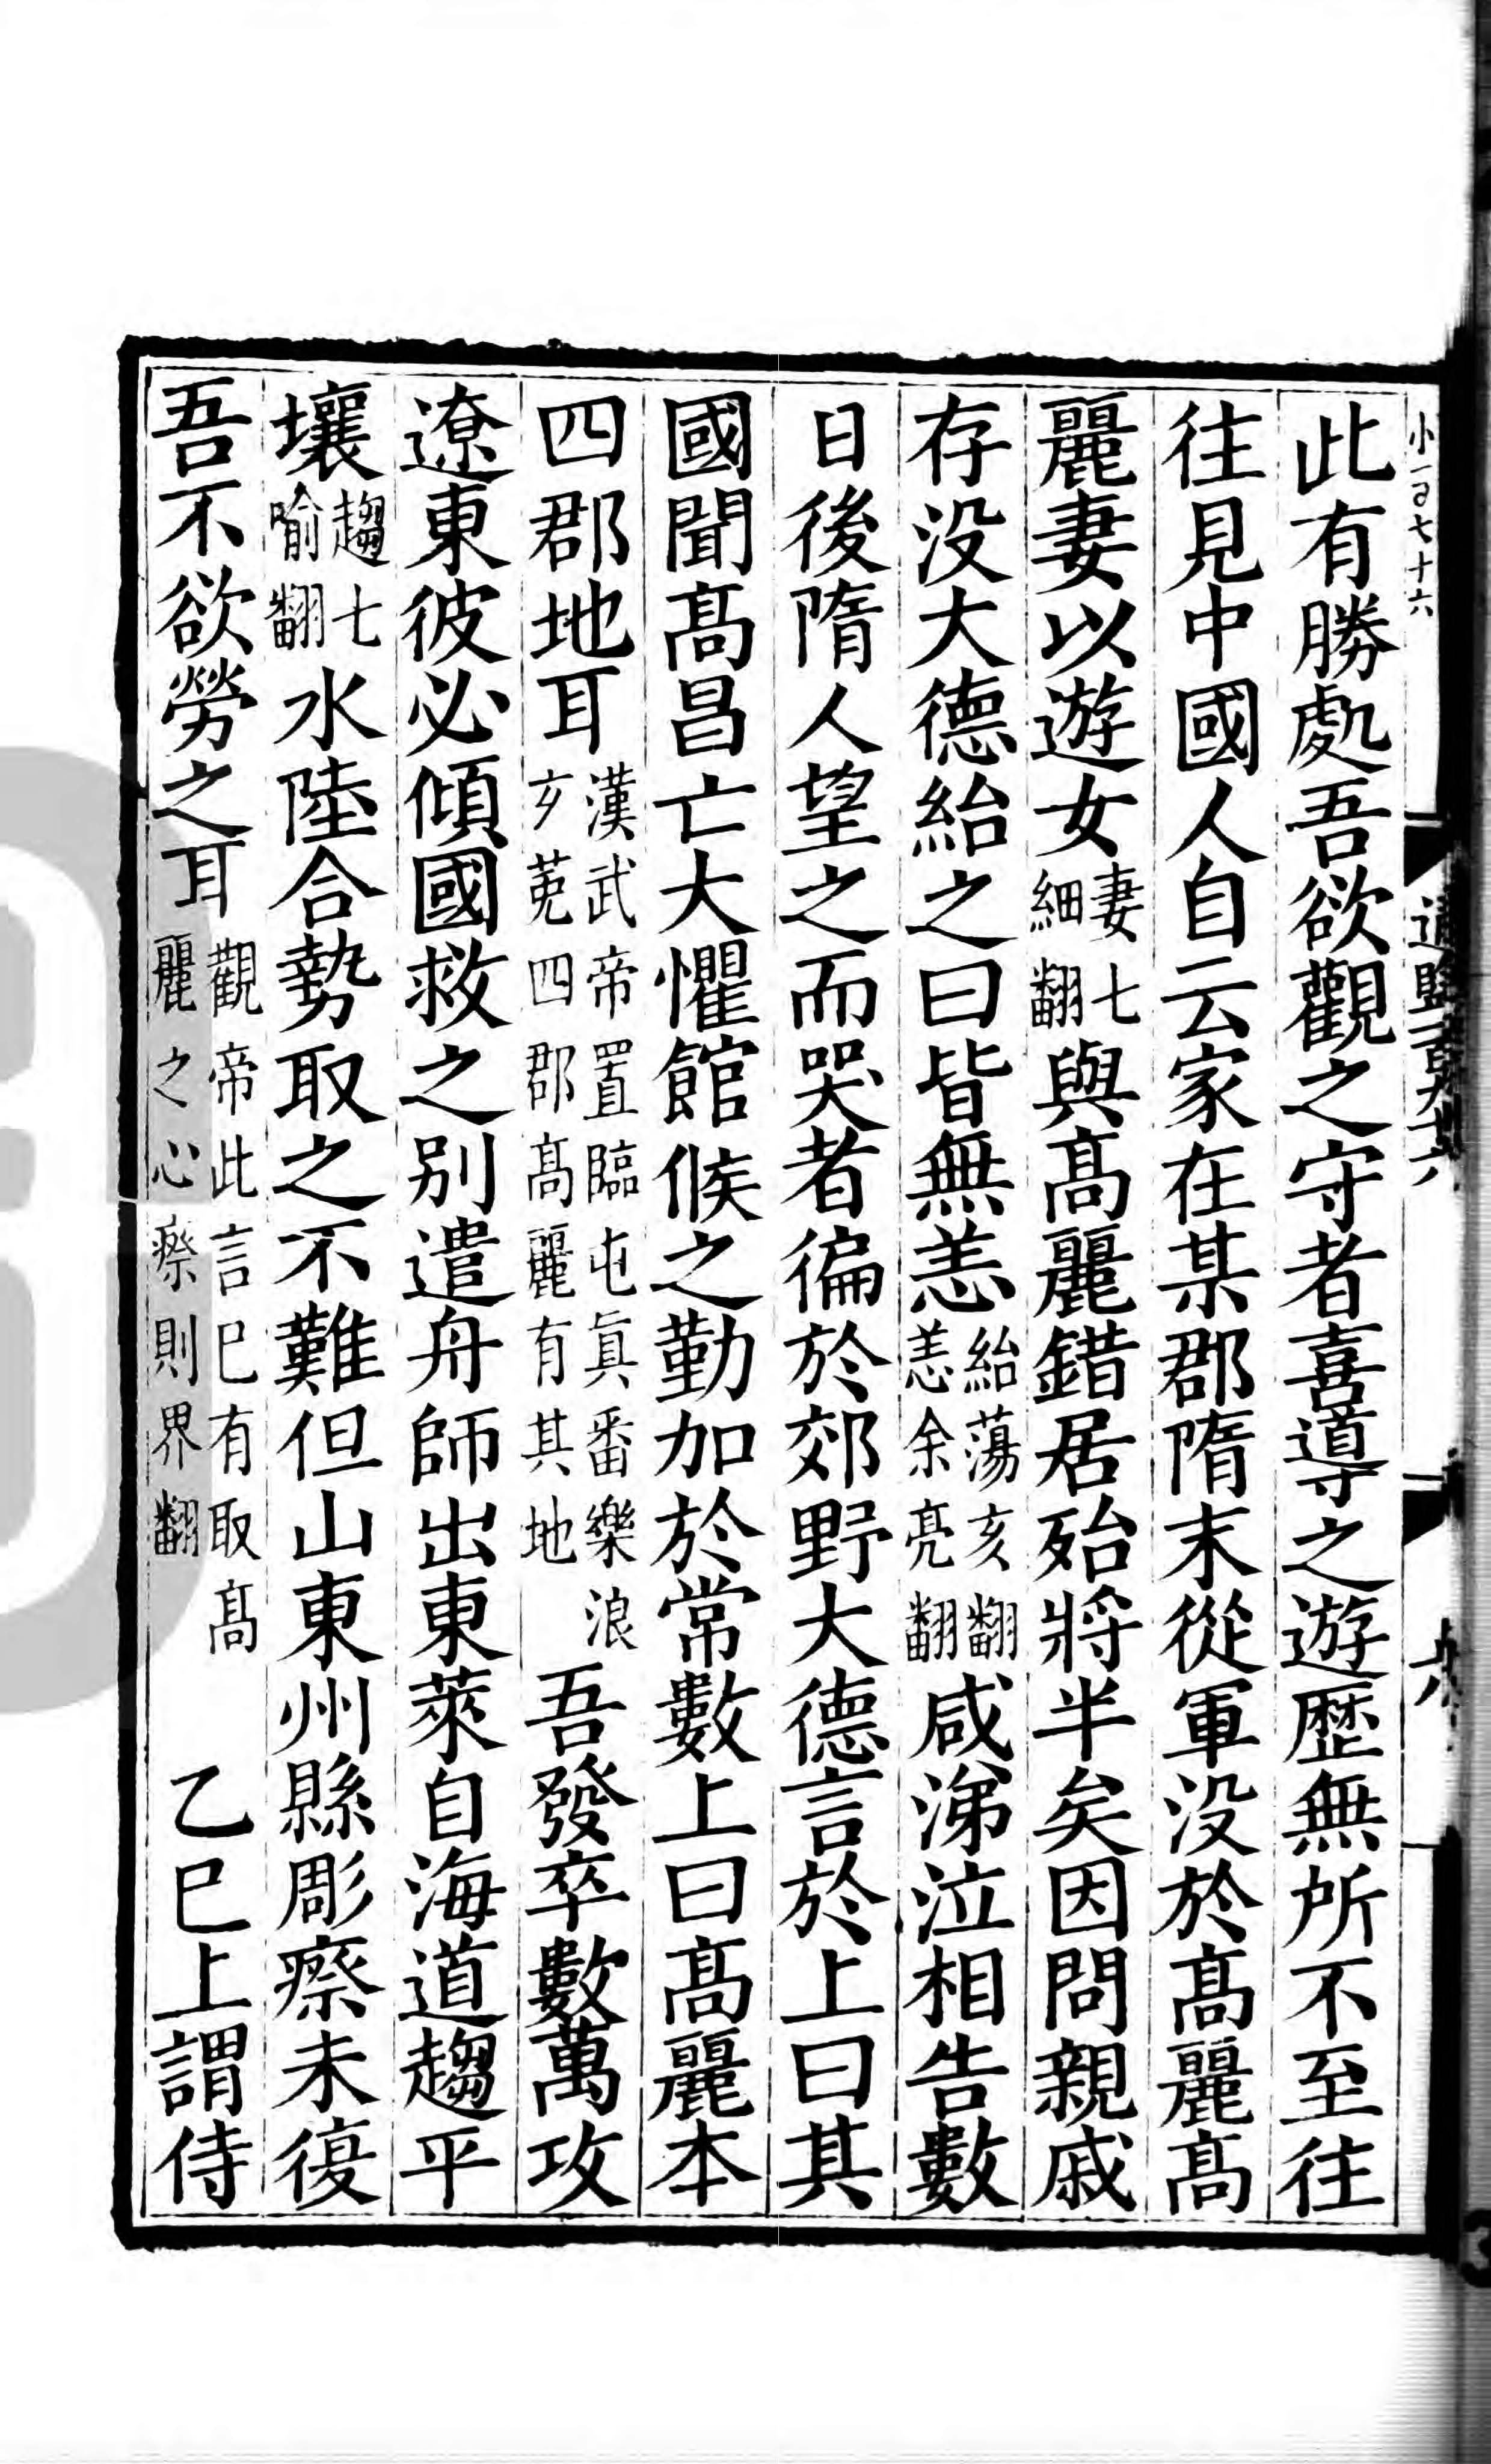 小一百七十六
此有勝處吾欲觀之守者喜導之遊歷無所不至往
往見中國人自云家在某郡隋末從軍没於髙麗髙
麗妻以遊女妻七細翻與髙麗錯居殆將半矣因問親戚
存没大德紿之曰皆無恙紿蕩亥翻恙余亮翻咸涕泣相告數
日後隋人望之而哭者徧於郊野大德言於上曰其
國聞髙昌亡大懼館候之勤加於常數上曰髙麗本
四郡地耳漢武帝置臨屯眞番樂浪玄菟四郡髙麗有其地吾發卒數萬攻
遼東彼必傾國救之别遣舟師出東萊自海道趨平
壤趨七喻翻水陸合勢取之不難但山東州縣彫瘵未復
吾不欲勞之耳觀帝此言巳有取髙麗之心瘵則界翻 乙巳上謂侍